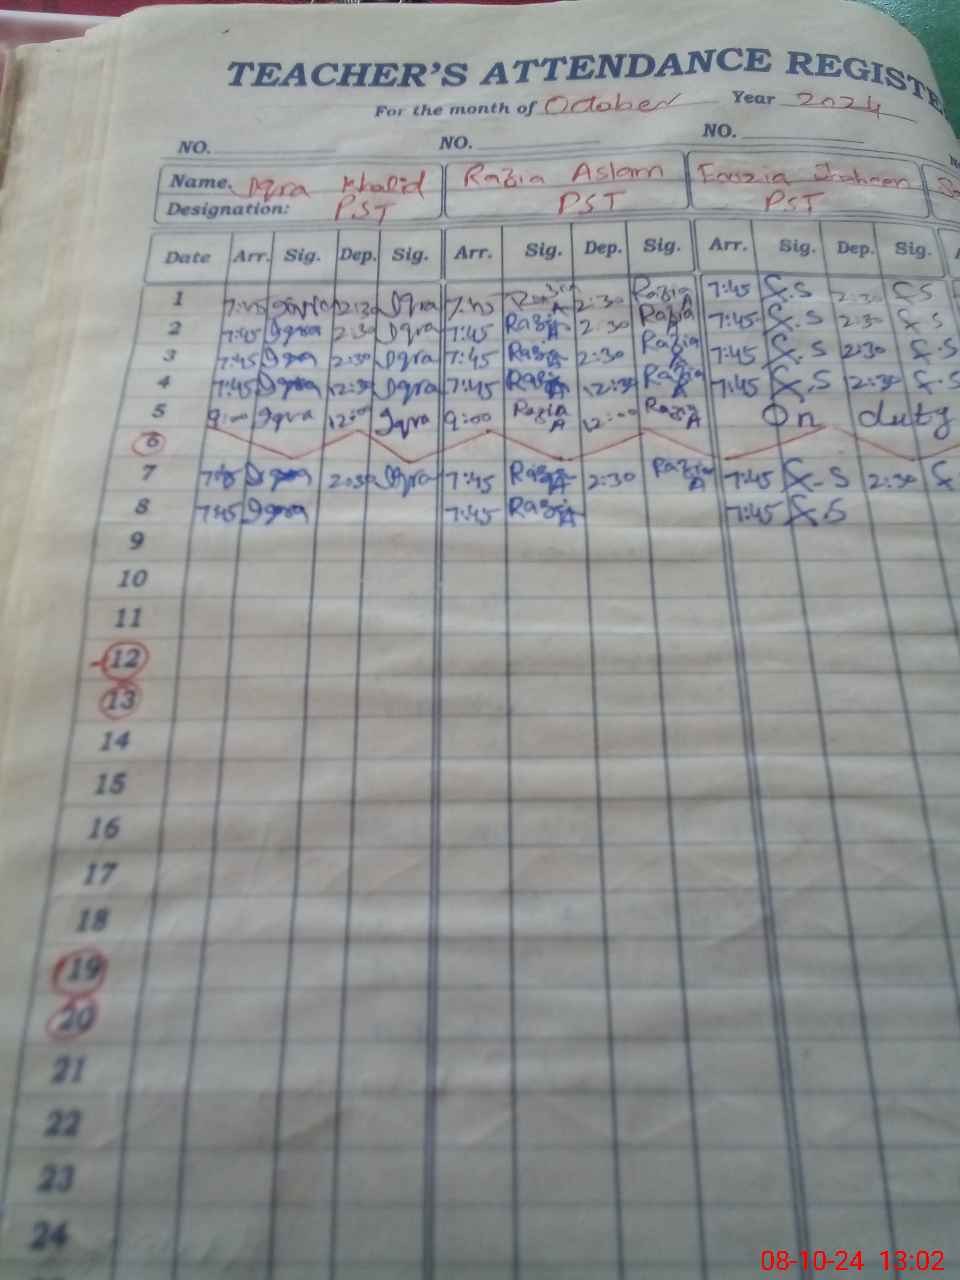 TEACHER'S ATTENDANCE REGISTE
For the month of October Year 2024
NO. NO. NO.
Name. Iqra Khalid Razia Aslam Fouzia Shaheen
Designation: PST PST PST
Date Arr. Sig. Dep. Sig. Arr. Sig. Dep. Sig. Arr. Sig. Dep. Sig.
1 7:45 Iqra 2:30 Iqra 7:45 Razia A 2:30 Razia A 7:45 F.S 2:30 F.S
2 7:45 Iqra 2:30 Iqra 7:45 Razia A 2:30 Razia A 7:45 F.S 2:30 F.S
3 7:45 Iqra 2:30 Iqra 7:45 Razia A 2:30 Razia A 7:45 F.S 2:30 F.S
4 7:45 Iqra 12:30 Iqra 7:45 Razia A 12:30 Razia A 7:45 F.S 12:30 F.S
5 9:00 Iqra 12:00 Iqra 9:00 Razia A 12:00 Razia A On duty
6
7 7:45 Iqra 2:30 Iqra 7:45 Razia A 2:30 Razia A 7:45 F.S 2:30 F
8 7:45 Iqra 7:45 Razia A 7:45 F.S
9
10
11
12
13
14
15
16
17
18
19
20
21
22
23
24
08-10-24 13:02